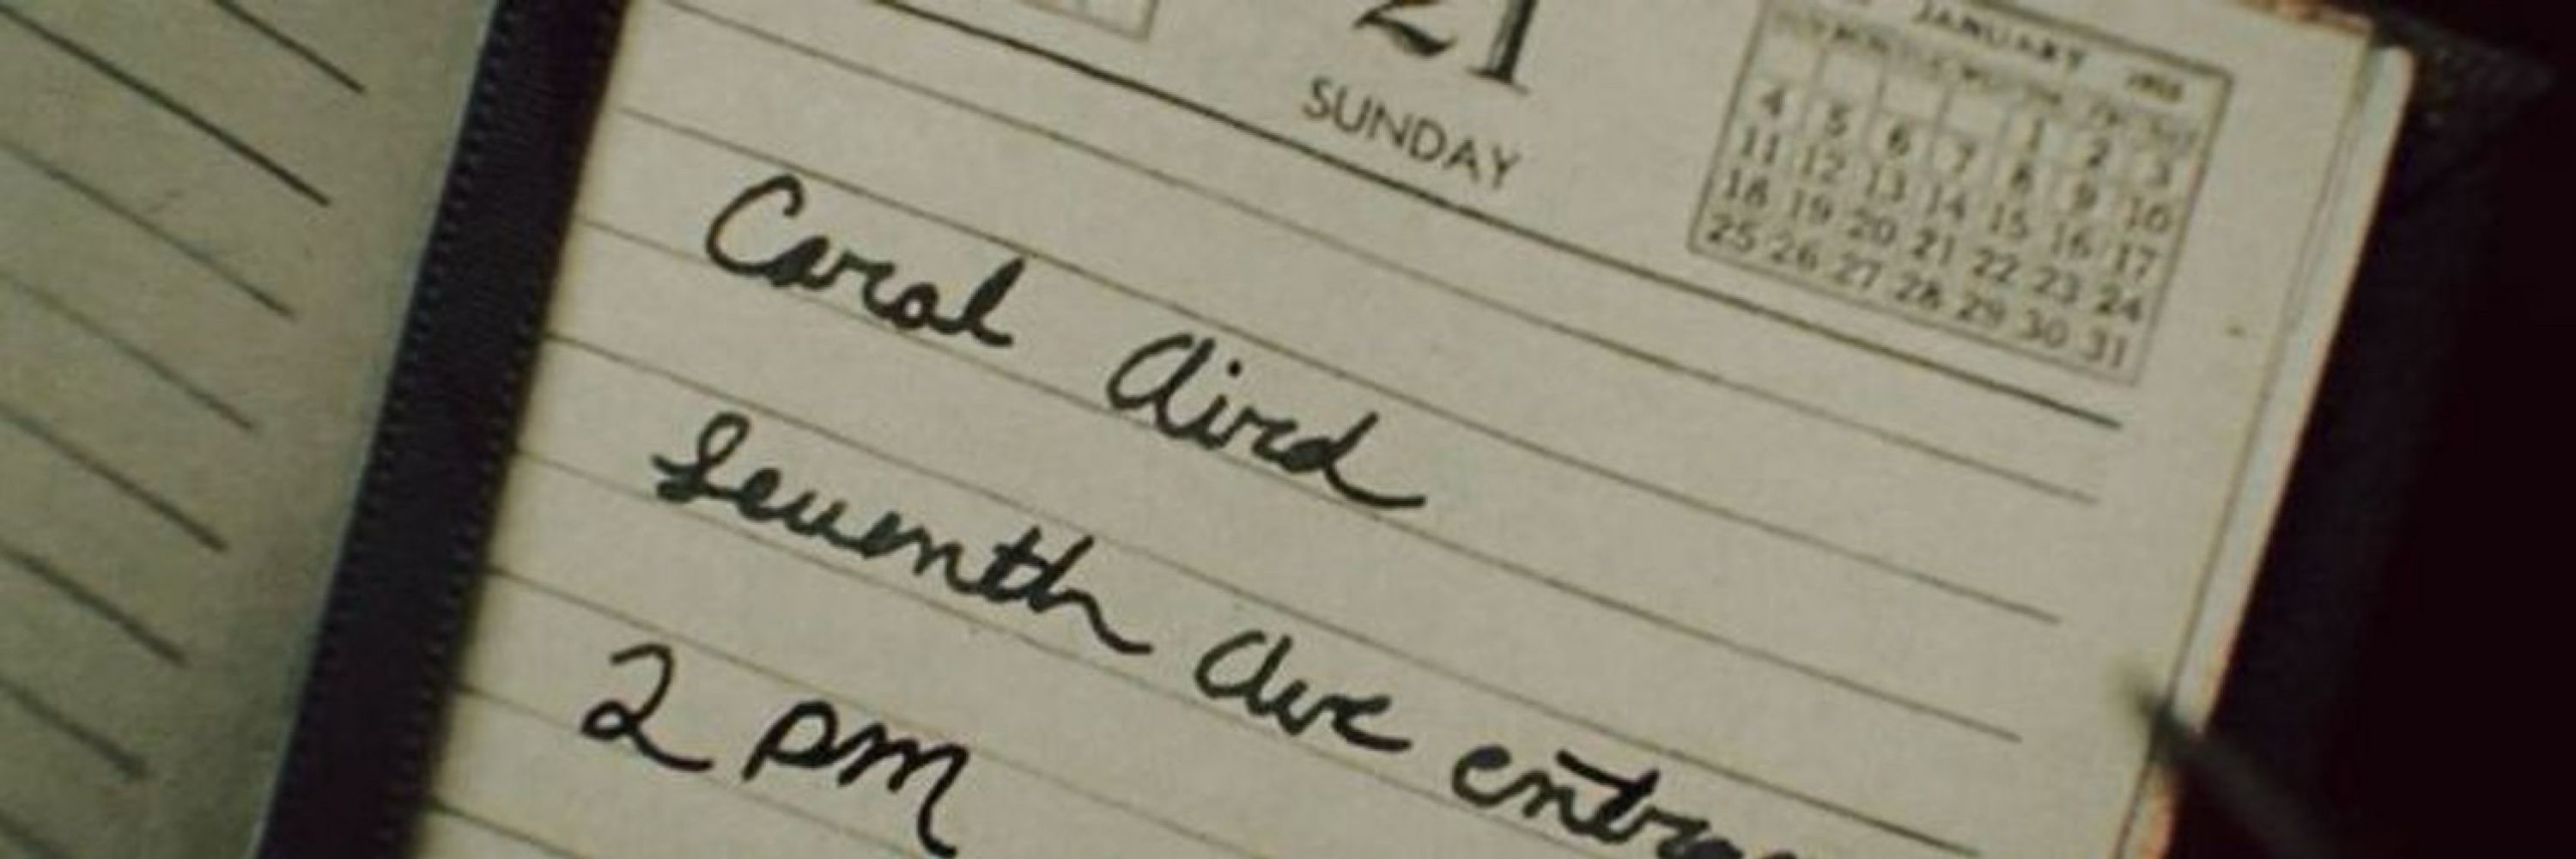 21
SUNDAY
JANUARY
1 2 3
4 5 6 7 8 9 10
11 12 13 14 15 16 17
18 19 20 21 22 23 24
25 26 27 28 29 30 31
Carol Aird
Seventh Ave entra
2 pm